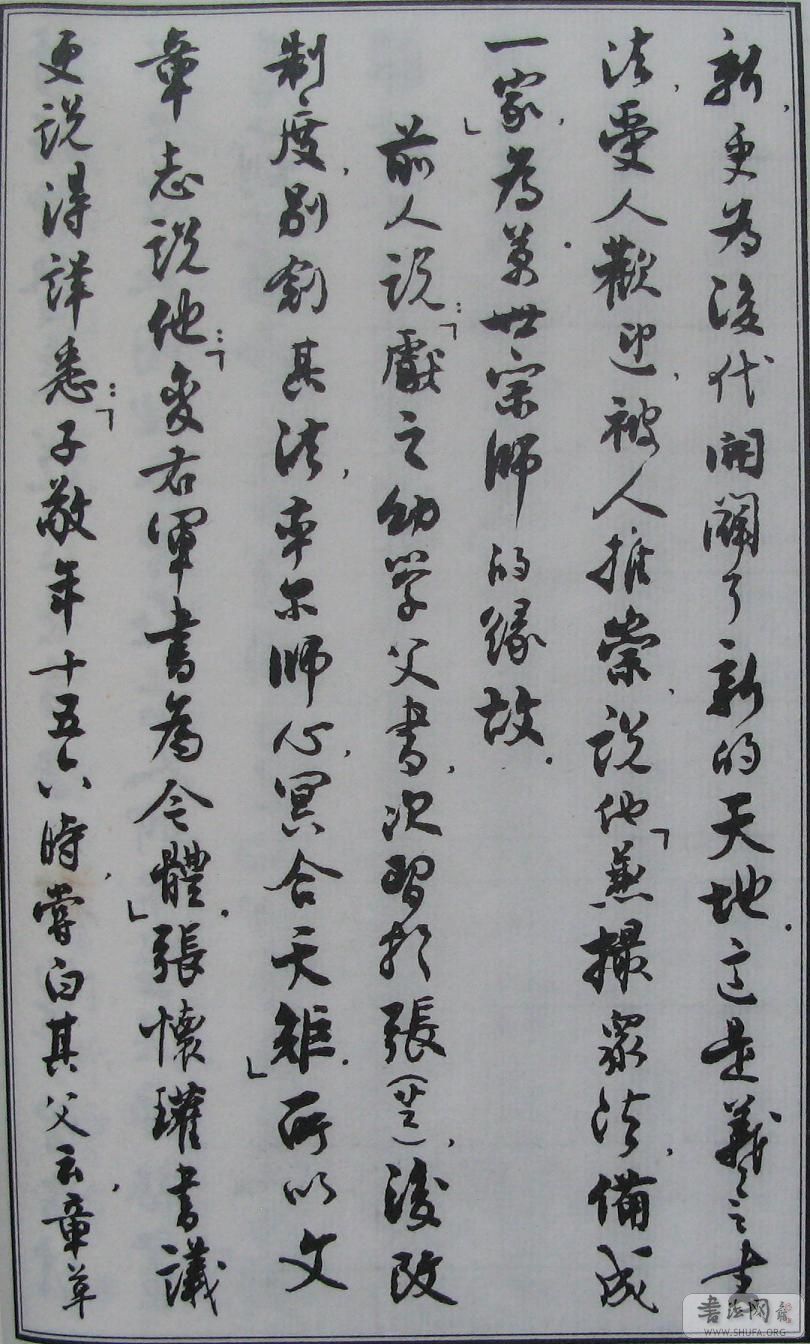 新，更為後代開闢了新的天地。這是羲之書
法，受人歡迎，被人推崇，說他「兼撮眾法，備成
一家」，為萬世宗師的緣故。
前人說：「獻之幼學父書，次習於張（芝），後改
制度，別創其法，率尔師心，冥合天矩。」所以文
章志說他：「變右軍書為今體」。張懷瓘書議
更說得詳悉：「子敬年十五六時，嘗白其父云，章草
書法网
WWW.SHUFA.ORG